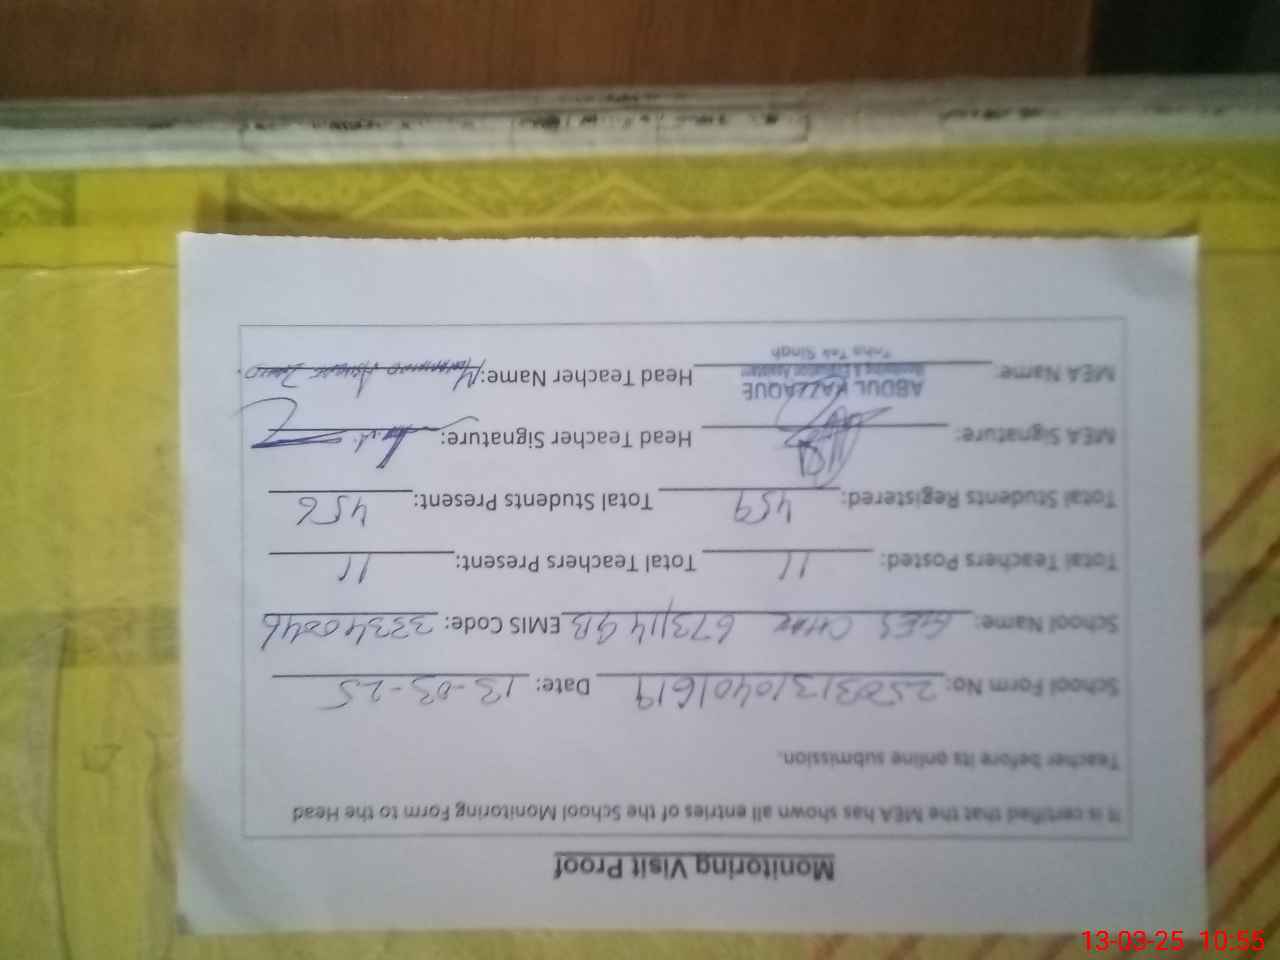 Monitoring Visit Proof
It is certified that the MEA has shown all entries of the School Monitoring Form to the Head
Teacher before its online submission.
School Form No: 250313104016 19 Date: 13-03-25
School Name: GES CHAK 673/14 GB EMIS Code: 33340046
Total Teachers Posted: 11 Total Teachers Present: 11
Total Students Registered: 459 Total Students Present: 456
MEA Signature: Head Teacher Signature:
MEA Name: ABDUL RAZZAQUE Head Teacher Name: Muhammad
Monitoring & Evaluation Assistant
Toba Tek Singh
13-03-25 10:55